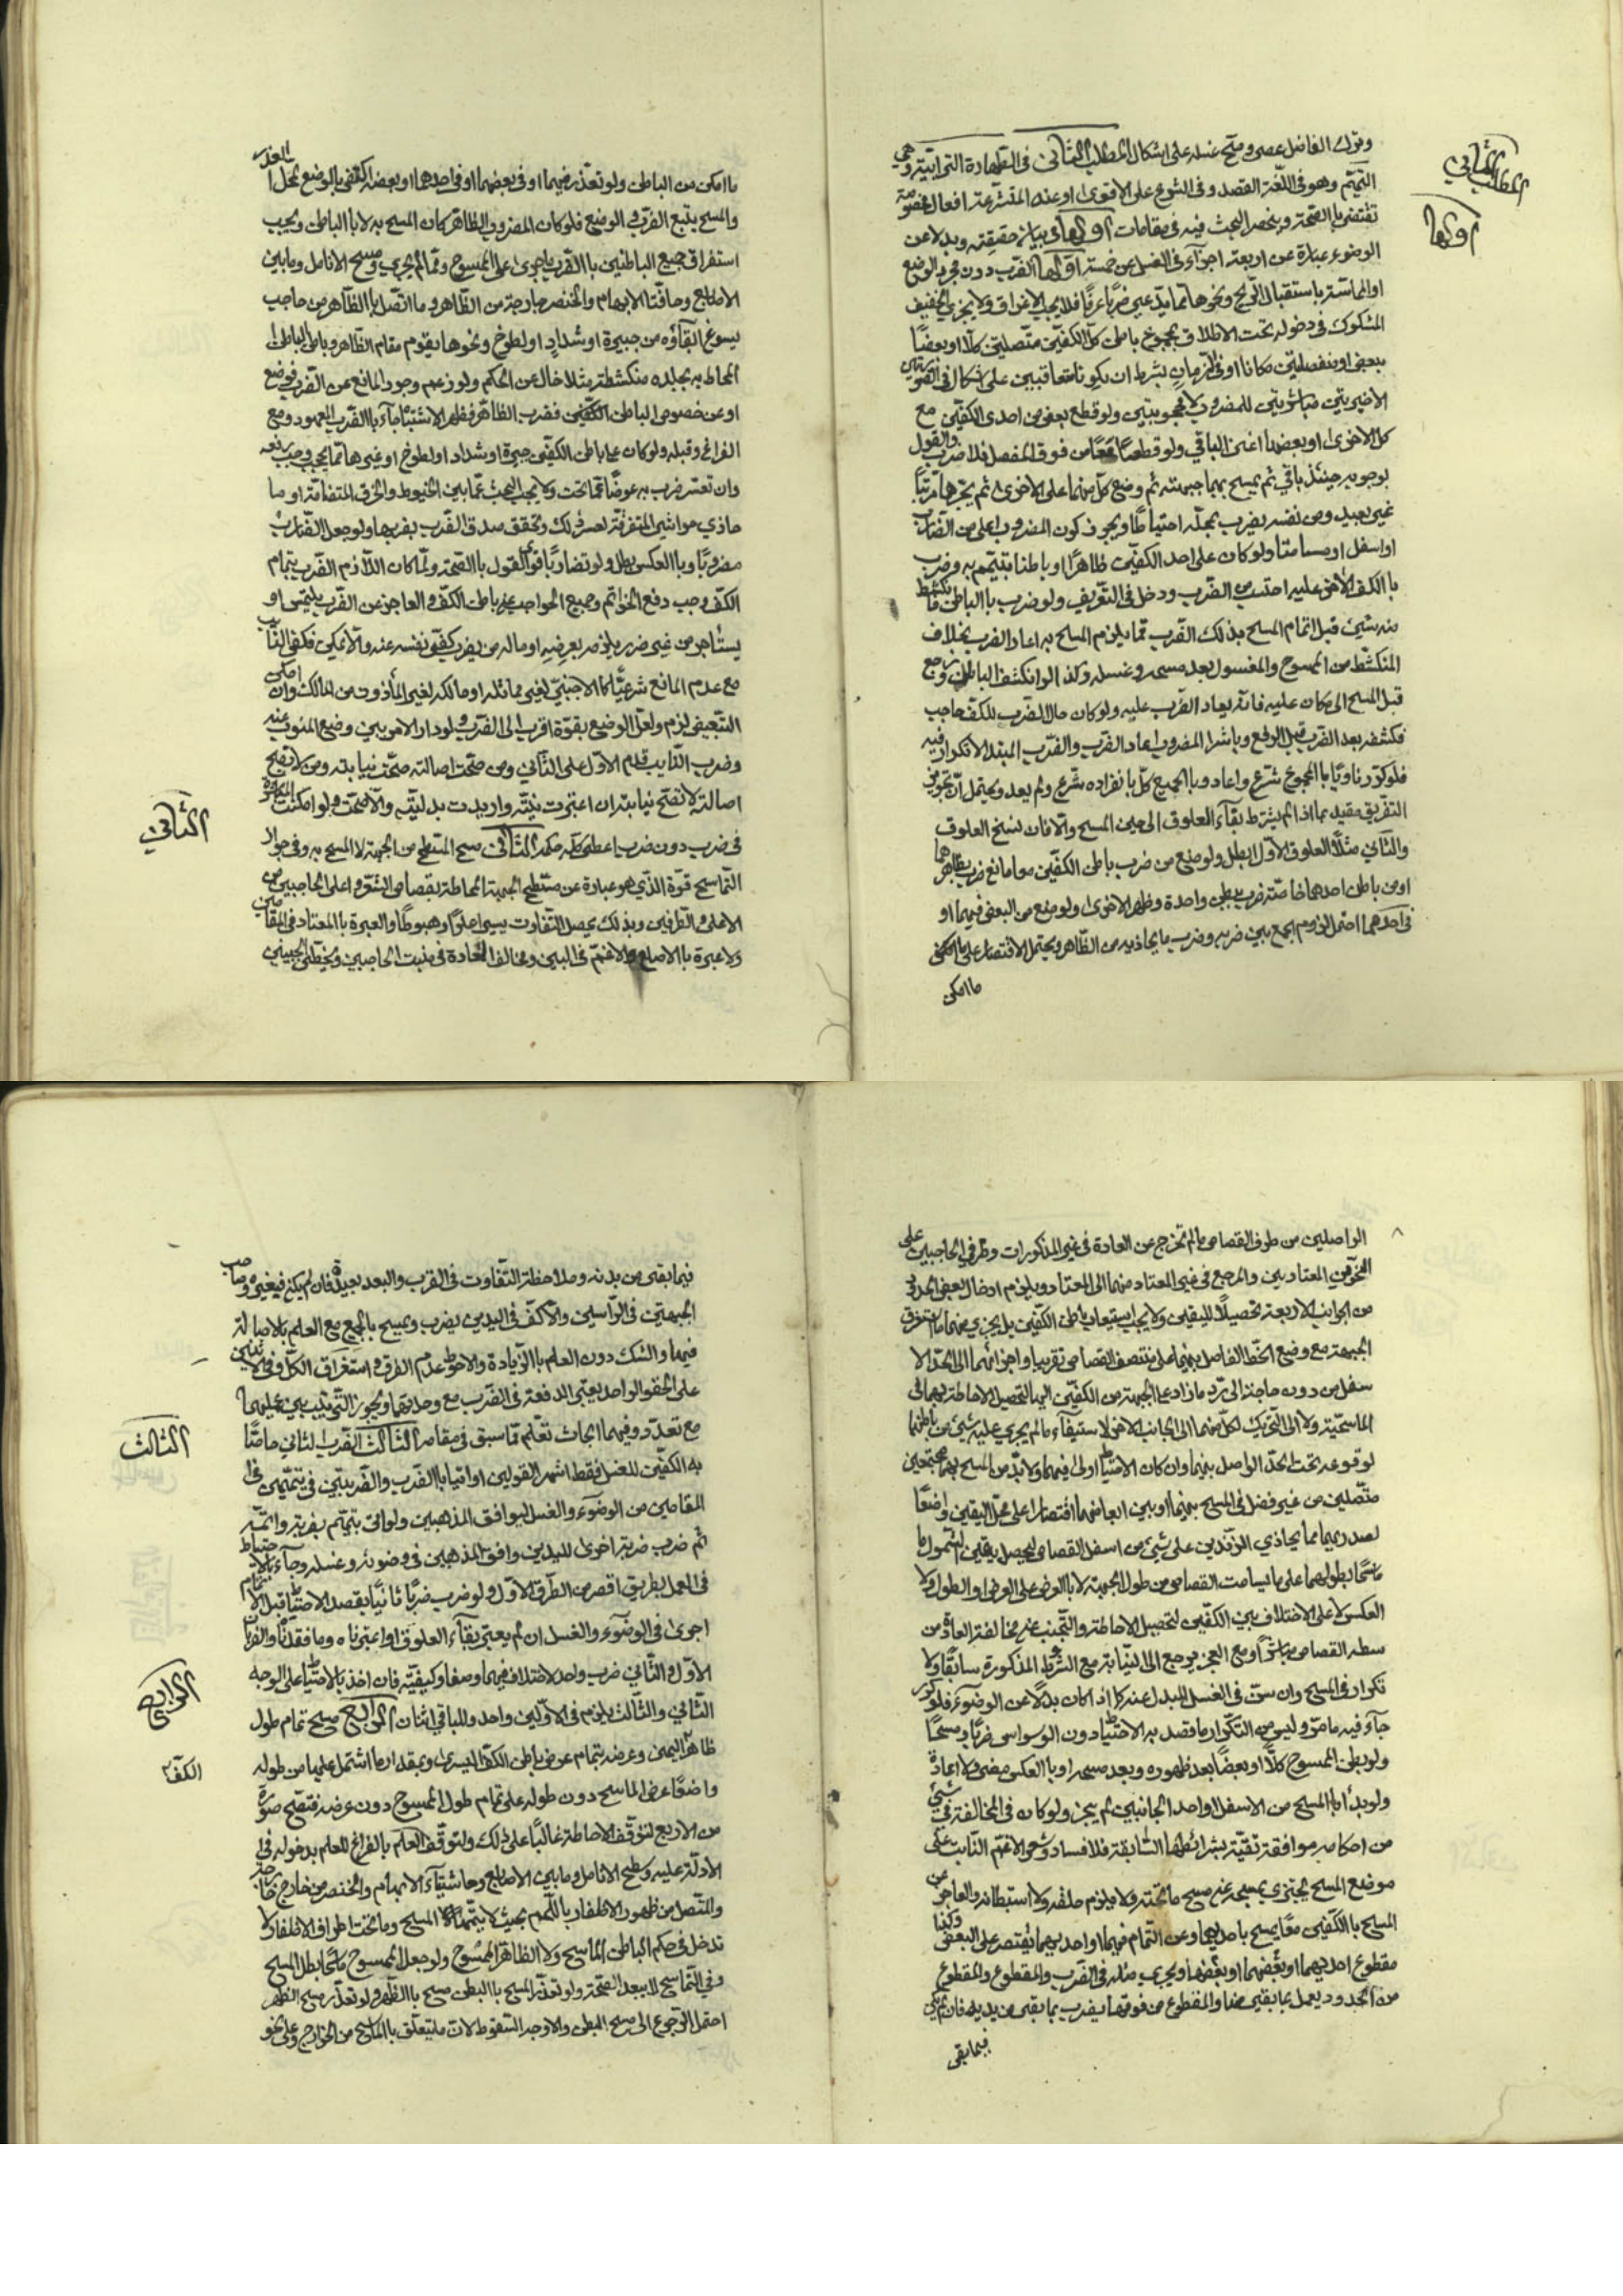 وترك الفاضل عصى وصح غسله على اشكال المطلب الثاني في الطهارة الترابية وهي
المطلب الثاني
التيمم وهو في اللغة القصد وفي الشرع على الاقوى او عند المتشرعة افعال مخصوصة
اولها
تقتضي بالصحة وينحصر البحث فيه في مقامات اولها في بيان حقيقته وبدلا عن
الوضوء عبارة عن اربعة اجزاء وفي الغسل عن خمسة اولها الضرب دون مجرد الوضع
او المماسة باستقبال الريح ونحوها مما يدعى ضربا عرفا فلا يجب الاغراق ولا يجزي الخفيف
المشكوك في دخوله تحت الاطلاق بمجموع باطن كل الكفين متصلين كلا او بعضا
ببعض او منفصلين مكانا او في الزمان بشرط ان يكونا متعاقبين على اشكال في الصورتين
الاخيرتين مباشرتين للمضروب لا محجوبتين ولو قطع بعض من احدى الكفين مع
كل الاخرى او بعضها اغنى الباقي ولو قطعتا معا من فوق المفصل فلا ضرب والقول
بوجوبه حينئذ باق ثم يمسح بهما جبهته ثم وضع كل منهما على الاخرى ثم يجرها مرتبا
غير بعيد ومن نفسه يضرب بمحله احتياطا ويجوز كون المضروب اعلى من الضارب
او اسفل او مسامتا ولو كان على احد الكفين ظاهرا او باطنا تيمم به وضرب
بالكف الاخرى عليه احتسب من الضرب ودخل في التعريف ولو ضرب بالباطن فانكشط
منه شيئ قبل اتمام المسح بذلك الضرب مما يلزم المسح به اعاد الضرب بخلاف
المنكشط من الممسوح والمغسول بعد مسحه وغسله وكذا لو انكشف الباطن ورجع
قبل المسح الى مكان عليه فانه يعاد الضرب عليه ولو كان حال الضرب للكف حاجب
فكشفه بعد الضرب قبل الرفع وباشر المضروب اعاد الضرب والضرب المبتدا لا تكرار فيه
فلو كرر ناويا بالمجموع شرع واعاد وبالجميع كل بانفراده شرع ولم يعد ويحتمل ان تجويز
التفريق مقيد بما اذا لم يشترط بقاء العلوق الى حين المسح والا فان نسخ العلوق
والثاني مثلا العلوق الاول بطل ولو منع من ضرب باطن الكفين معا مانع ضرب بظاهرهما
او من باطن احدهما خاصة ضرب ببطن واحدة وظهر الاخرى ولو منع من البعض فيهما او
في احدهما احتمل لزوم الجمع بين ضربه وضرب ما يحاذيه من الظاهر ويحتمل الاقتصار على الممكن
ما امكن
ما امكن من الباطن ولو تعذر فيهما او في بعضهما او في احدهما او بعضه اكتفى بالوضع لمحل العذر
والمسح يتبع الضرب والوضع فلو كان المضروب الظاهر كان المسح به لا بالباطن ويجب
استغراق جميع الباطنين بالضرب باجرى على الممسوح وما لم يجرى ومسح الانامل وما بين
الاصابع وحافتا الابهام والخنصر خارجة من الظاهر وما اتصل بالظاهر من حاجب
يسوغ ابقاؤه من جبيرة او شداد او لطوخ ونحوها يقوم مقام الظاهر وبالباطن الباطن
المحاط به بجلده منكشطة مثلا خال عن الحكم ولو زعم وجود المانع عن الضرب فوضع
او عن خصوص الباطن الكفين فضرب الظاهر فظهر الاشتباه جاء بالضرب المعهود ومع
الفراغ وقبله ولو كان على باطن الكفين جبيرة او شداد او لطوخ او غيرها مما يجب وجب رفعه
وان تعسر ضرب به عوضا عما تحت ولا يجب البحث عما بين الخيوط والخرق المتضامة او ما
حاذي حواشي المتفرقة لعسر ذلك وتحقق صدق الضرب بضربها ولو جعل الضارب
مضروبا وبالعكس بطل ولو تضاربا قوى القول بالصحة ولما كان اللازم الضرب بتمام
الكف وجب دفع الخواتم وجميع الحواجب عن باطن الكف والعاجز عن الضرب يلتمس او
يستاجر من غير ضرر يلزمه بعرضه او ماله من يضرب بكفي نفسه عنه والا يمكن فبكفي النائب
مع عدم المانع شرعيا كالاجنبي لغير مماثله او مالكه لغير المأذون من المالك وان امكن
التبعيض لزم ولعل الوضع بقوة اقرب الى الضرب ولو دار الامر بين وضع المنوب عنه
وضرب النايب قدم الاول على الثاني ومن صحت اصالته صحت نيابته ومن لا تصح
الثاني
اصالته لا تصح نيابته ان اعتبرت نيته واريدت بدليته والا صحت ولو امكنت المباشرة
في ضرب دون ضرب اعطى كل حكمه الثاني مسح المستطح من الجبهة لا المسح به وفي جواز
التماسح قوة الذي هو عبارة عن مستطح الجبهة المحاطة بقصاص الشعر واعلى الحاجبين من
الاعلى والطرفين وبذلك يحصل التفاوت يسيرا علوا وهبوطا والعبرة بالمعتاد في المقامين
ولا عبرة بالاصلع والاغم في البين ومخالف العادة في منبت الحاجبين وبخطي الجبين
الواصلين من طرف القصاص ما لم تخرج عن العادة في غير المذكورات وطرفي الحاجبين على
النحوين المعتادين والمرجع في غير المعتاد منهما الى المعتاد ويلزم ادخال بعض الحدود
من الجوانب الاربعة تحصيلا لليقين ولا يجب استيعاب باطن الكفين بل يجزي منهما ما استغرق
الجبهة مع وضع الخط الفاصل بينهما على منتصف القصاص تقريبا واجزائهما الى الحد الا
سفل من دون حاجة الى رد ما زاد على الجبهة من الكفين اليها لتحصيل الاحاطة بهما في
الماسحية ولا الى التحريك لكل منهما الى الجانب الاخر لاستيفاء ما لم يجري عليه شيئ من باطنها
لوقوعه تحت الحد الواصل بينهما وان كان الاحتياط اولى فيهما ولا بد من المسح بهما مجتمعين
متصلين من غير فصل في المسح بينهما او بين ابعاضهما اقتصارا على محل اليقين واضعا
لصدريهما مما يحاذي الزندين على شيئ من اسفل القصاص ليحصل يقين الشمول ما
سحا بطولهما على ما يسامت القصاص من طول الجبهة لا بالعرض على العرض او الطول ولا
العكس ولا على الاختلاف بين الكفين لتحصيل الاحاطة والتجنب عن مخالفة العادة من
سطه القصاص مباشرا ومع العجز يرجع الى النيابة مع الشرط المذكورة سابقا ولا
تكرار في المسح وان سن في الغسل المبدل عنه كما اذا كان بدلا عن الوضوء فلو كرر
جاء فيه ما مر وليس من التكرار ما قصد به الاحتياط دون الوسواس ضربا ومسحا
ولو بطن الممسوح كلا او بعضا بعد ظهوره وبعد مسحه او بالعكس مضى ولا اعادة
ولو بدأ بالمسح من الاسفل او احد الجانبين لم يجز ولو كان في المخالفة في شيئ
من احكامه موافقة تقية بشرائطها السابقة فلا فساد وشعر الاغم النابت على
موضع المسح يجتزي بمسحه عن مسح ما تحته ولا يلزم حلقه ولا استبطانه والعاجز عن
المسح بالكفين معا يمسح باحديهما وعن التمام فيهما او احديهما يقتصر على البعض وكذا
مقطوع احديهما او بعضهما او بعضها ويجرى مثله في الضرب والمقطوع والمقطوع
من الحدود يعمل بما بقي منها والمقطوع من فوقها يضرب بما بقي من يديه فان لم يكن
فيما بقي
فيما بقى من بدنه وملاحظة التفاوت في القرب والبعد بعيدة فان لم يكن فبغيره وصاحب
الجبهتين في الراسين والاكف في اليدين يضرب ويمسح بالجميع مع العلم بالاصالة
فيهما والشك دون العلم بالزيادة والاحوط عدم الفرق في استغراق الكل وفي ذي بدنين
على الحقو الواحد يعتبر الدفعة في الضرب مع وحدتهما ويجوز الترتيب بين عمليهما
الثالث
مع تعدده وفيهما ابحاث تعلم مما سبق في مقامه الثالث الضرب الثاني ماضا
به الكفين للغسل فقط اشهر القولين او اتيا بالضرب والضربتين في تيممين في
المقامين من الوضوء والغسل ليوافق المذهبين ولو اتى بتيمم بضربة واتمه
ثم ضرب ضربة اخرى لليدين وافق المذهبين في وضوئه وغسله وجاء بالاحتياط
في العمل بطريق اقصر من الطرق الاول ولو ضرب ضربا ثانيا بقصد الاحتياط قبل الاتمام
اجزى في الوضوء والغسل ان لم يعتبر بقاء العلوق او اعتبرناه وما فقدناه والضربان
الرابع
الاول والثاني ضرب واحد لا اختلاف فيهما وصفا وكيفية فان اخذ بالاحتياط على الوجه
الثاني والثالث يلزم في الاولين واحد وللباقي اثنان الرابع مسح تمام طول
الكف
ظاهر اليمنى وعرضه بتمام عرض باطن الكف اليسرى وبمقدار ما اشتمل عليها من طوله
واضعا عرض الماسح دون طوله على تمام طول الممسوح دون عرضه فتصح صورة
من الاربع لتوقف الاحاطة غالبا على ذلك ولتوقف العلم بالفراغ للعلم بدخوله في
الادلة عليه وسطح الانامل وما بين الاصابع وحاشيتا الابهام والخنصر من خارج خارجة
والمتصل من ظهور الاظفار باللحم بحيث لا يتمها المسح وما تحت اطراف الاظفار لا
تدخل في حكم الباطن الماسح ولا الظاهر الممسوح ولو جعل الممسوح ماسحا بطل المسح
وفي التماسح لا يبعد الصحة ولو تعذر المسح بالبطن مسح بالظهر ولو تعذر مسح الظهر
احتمل الرجوع الى مسح البطن والاوجه السقوط لان ما يتعلق بالماسح من الخوارج وعلى نحو